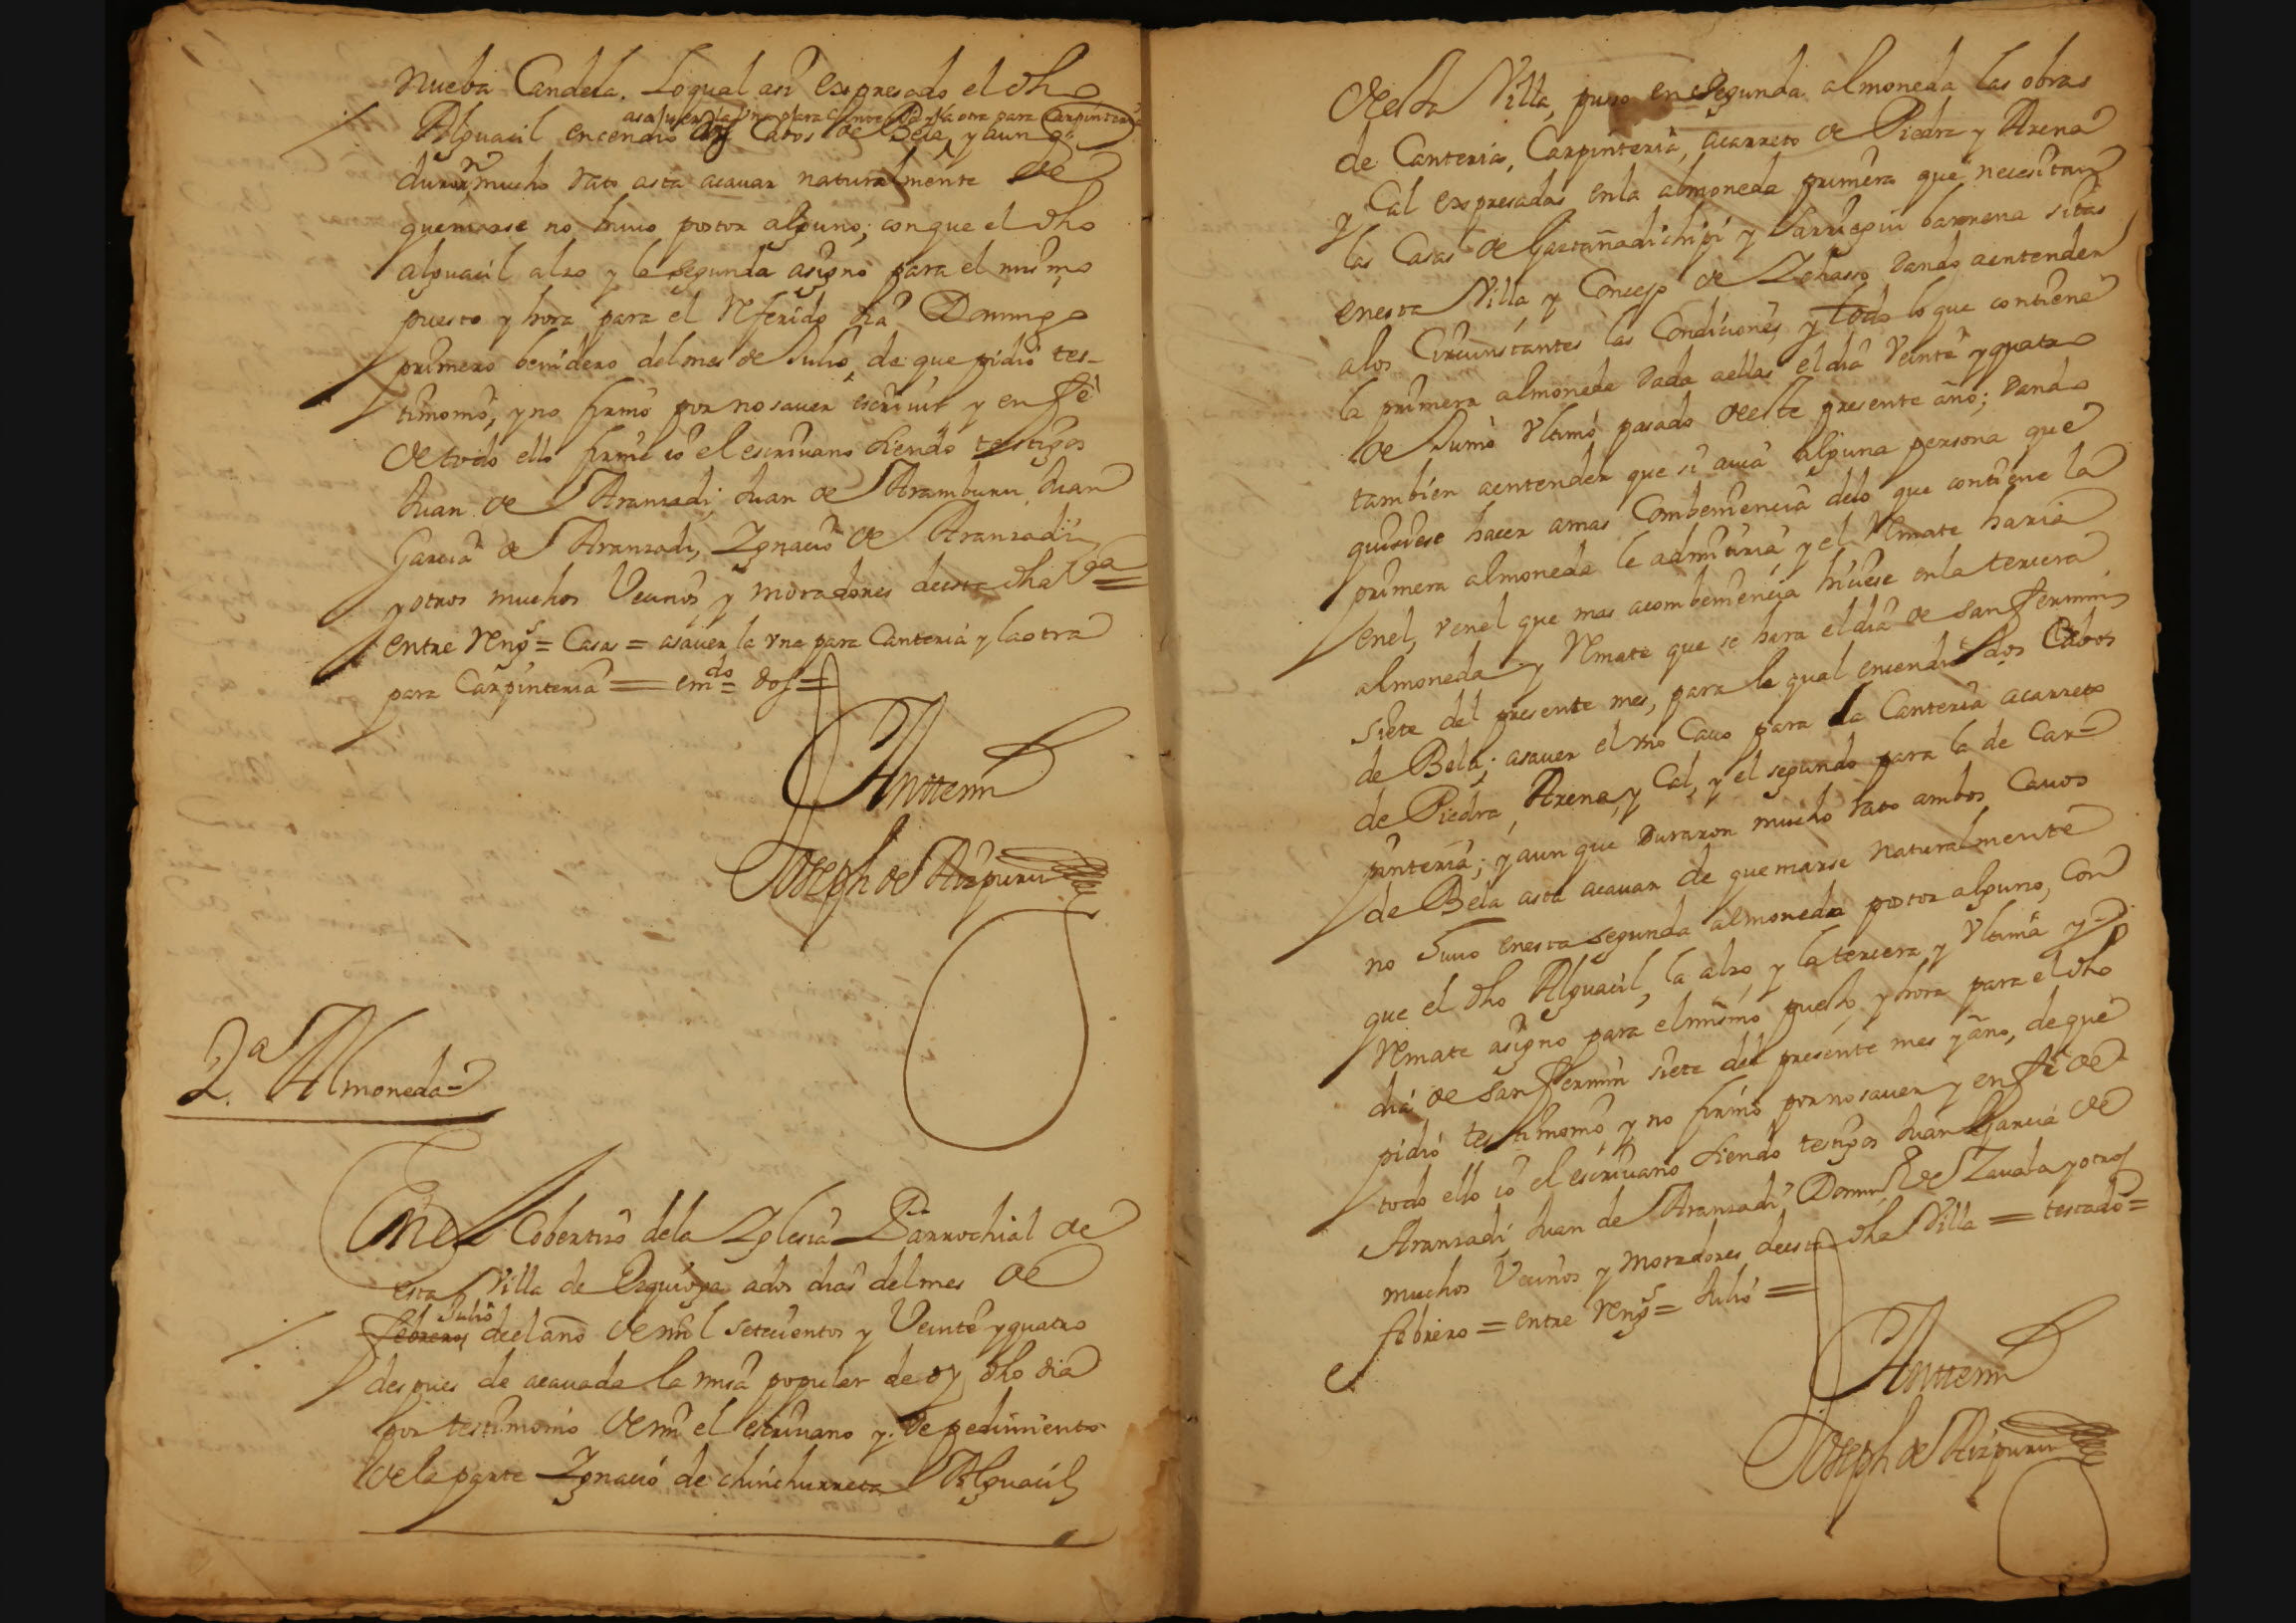 Nueba Candela. Loqual asi expresado el dho
asauer la vna para Canteria y la otra para Carpinteria
Alguacil encendio dos Cabos de Bela, y aun q^e
duraron mucho rato asta acauar naturalmente de
quemarse no huuo postor alguno; conque el dho
alguacil alzo y la segunda asigno para el mismo
puesto y hora para el referido dia Domingo
primero benidero del mes de Julio, de que pidio tes-
timonio, y no firmo por no sauer escriuir y en fe
de todo ello firme io el escriuano siendo testigos
Juan de Aranzadi, Juan de Aramburu, Juan
Garcia de Aranzadi, Ignacio de Aranzadi
y otros muchos Vecinos y moradores de esta dha V^a =
entre reng^s = Casas = asauer la vna para Canteria y la otra
para Carpinteria = em^do = dos =
Antte mi
Joseph de Aizpuru
2^a Almoneda
En el Cobertizo dela Iglesia Parrochial de
esta Villa de Ezquioga ados dias del mes de
Julio
febrero del año de mil setecientos y Veinte y quatro
despues de acauada la misa popular de oy dho dia
por testimonio de mi el escriuano y de pedimiento
dela parte Ignacio de chinchurreta Alguacil
de esta Villa, puso en segunda almoneda las obras
de Canteria, Carpinteria, acarreto de Piedra y Arena
y Cal expresadas enla almoneda primera que necesitan
las Casas de Gartañadichipi y barrena sitas
enesta Villa y Concejo de dando aentender
alos Circunstantes las Condiciones, y todo lo que contiene
la primera almoneda dada aellas el dia Veinte y quatro
de Junio Vltimo pasado de este presente año; dando
tambien aentender que si auia alguna persona que
quisiese hacer amas Combeniencia delo que contiene la
primera almoneda le admitiria, y el Remate haria
enel, y enel que mas acombeniencia hiciese enla tercera
almoneda y Remate que se hara el dia de san fermin
siete del presente mes, para lo qual encendio dos Cabos
de Bela; asauer el vno Cauo para la Canteria acarreto
de Piedra, Arena, y Cal, y el segundo para la de Car-
pinteria; y aun que duraron mucho rato ambos Cauos
de Bela asta acauar de quemarse naturalmente
no huuo enesta segunda almoneda postor alguno, Con
que el dho Alguacil, la alzo, y la tercera y Vltima y
Remate asigno para el mismo puesto, y hora para el dho
dia de san fermin siete del presente mes y año, de que
pidio testimonio y no firmo por no sauer y en fe de
todo ello io el escriuano siendo testigos Juan Garcia de
Aranzadi, Juan de Aranzadi, Domingo de Zauala y otros
muchos Vecinos y Moradores de esta dha Villa = testado =
febrero = entre reng^s = Julio =
Antte mi
Joseph de Aizpuru